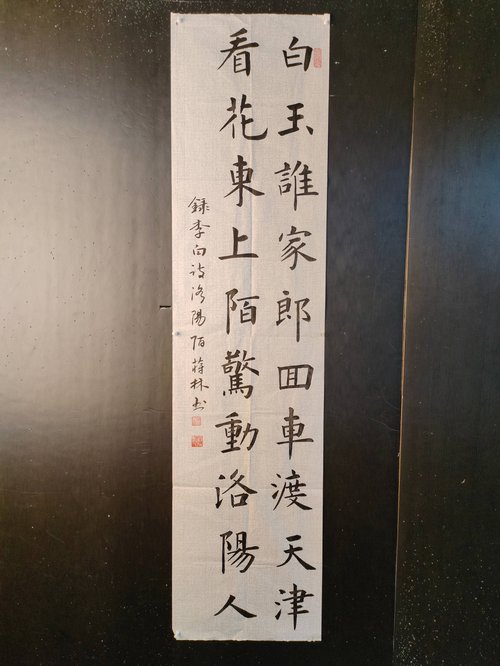 白玉誰家郎回車渡天津
看花東上陌驚動洛陽人
録李白詩洛陽陌蔣林书